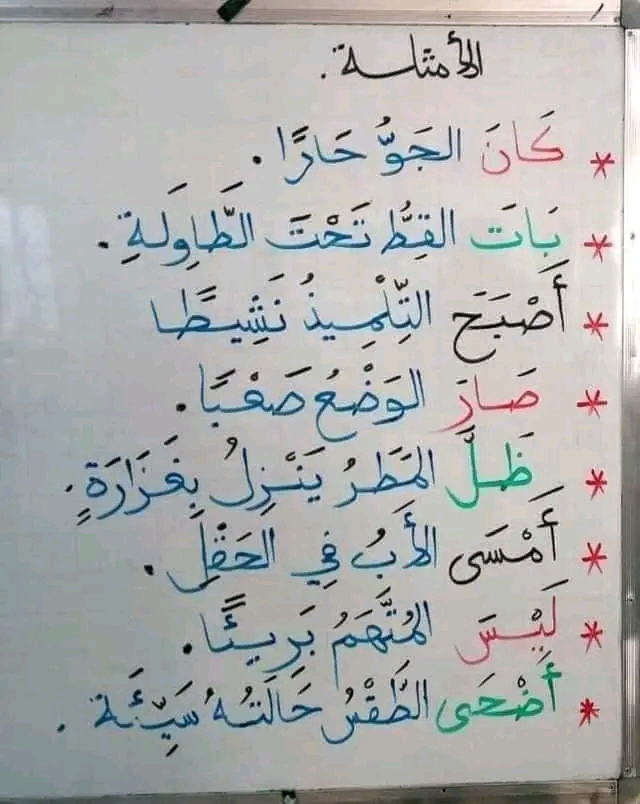 الأمثلة.
* كَانَ الجَوُّ حَارًا.
* بَاتَ القِطُّ تَحْتَ الطَّاوِلَةِ.
* أَصْبَحَ التِّلْمِيذُ نَشِيطًا
* صَارَ الوَضْعُ صَعْبًا.
* ظَلَّ المَطَرُ يَنْزِلُ بِغَزَارَةٍ.
* أَمْسَى الأَبُ فِي الحَقْلِ.
* لَيْسَ المُتَّهَمُ بَرِيئًا.
* أَضْحَى الطَّقْسُ حَالَتُهُ سَيِّئَة.